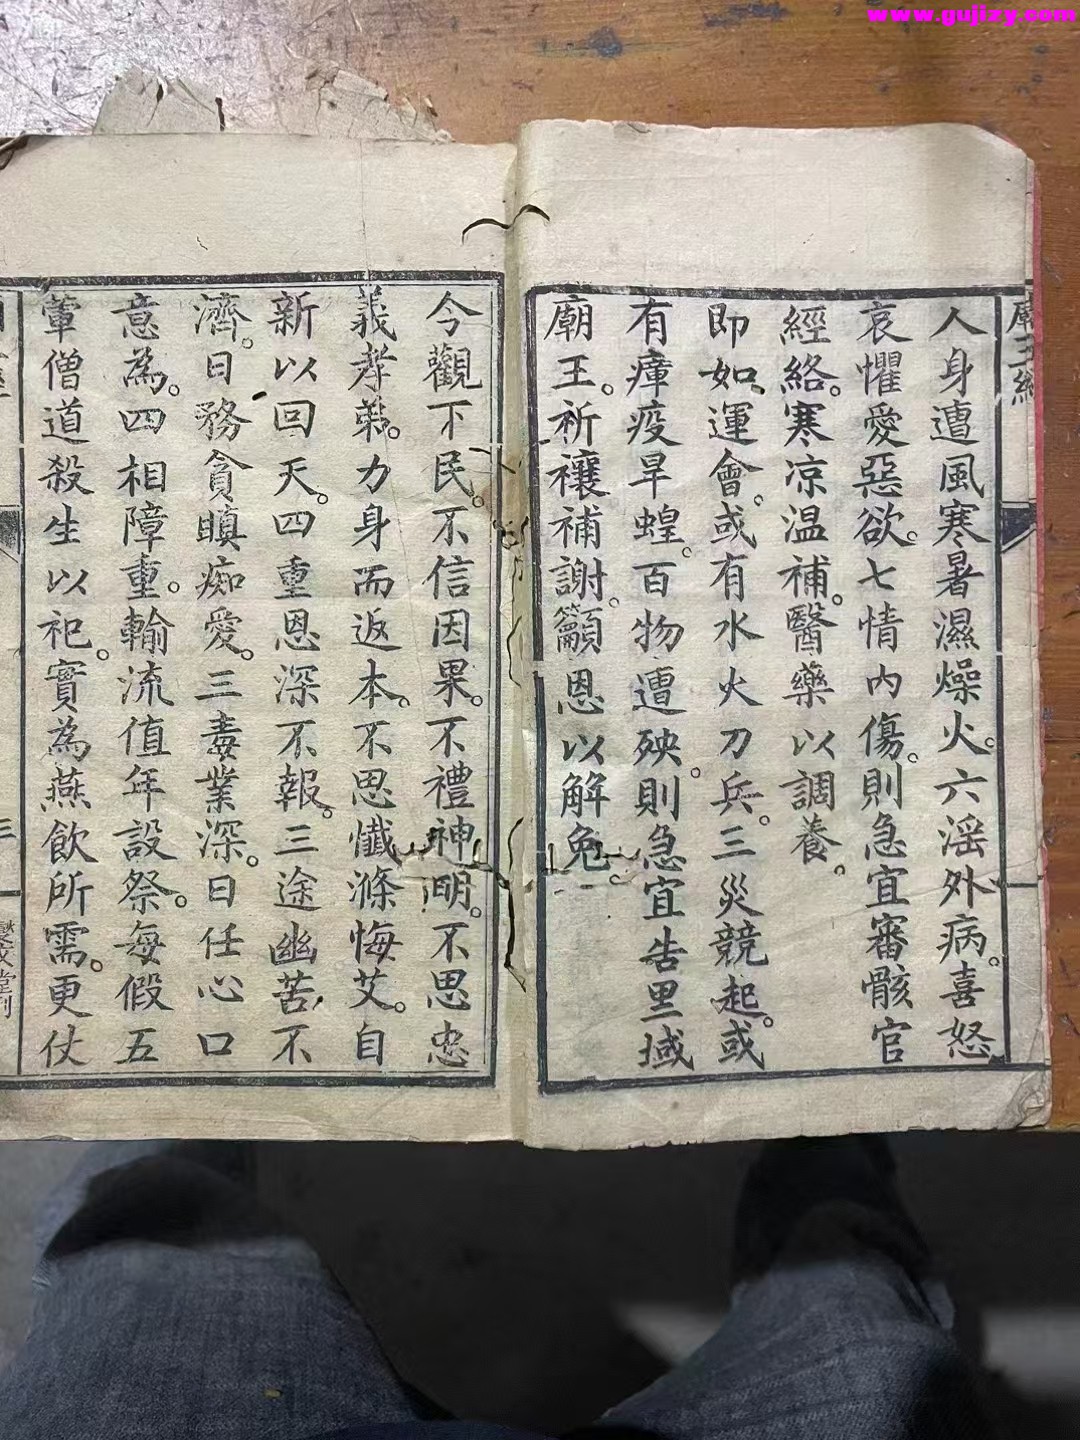 www.gujizy.com
廟王經
人身遭風寒暑濕燥火。六淫外病。喜怒
哀懼愛惡欲。七情內傷。則急宜審骸官
經絡。寒凉温補。醫藥以調養。
即如運會。或有水火刀兵。三災競起。或
有瘴疫旱蝗。百物遭殃。則急宜告里域
廟王。祈禳補謝。籲恩以解免。
今觀下民。不信因果。不禮神明。不思忠
義孝弟。力身而返本。不思懺滌悔艾。自
新以回天。四重恩深不報。三途幽苦不
濟。日務貪瞋痴愛。三毒業深。日任心口
意為。四相障重。輪流值年設祭。每假五
葷僧道殺生以祀。實為燕飲所需。更仗
三
堂刊